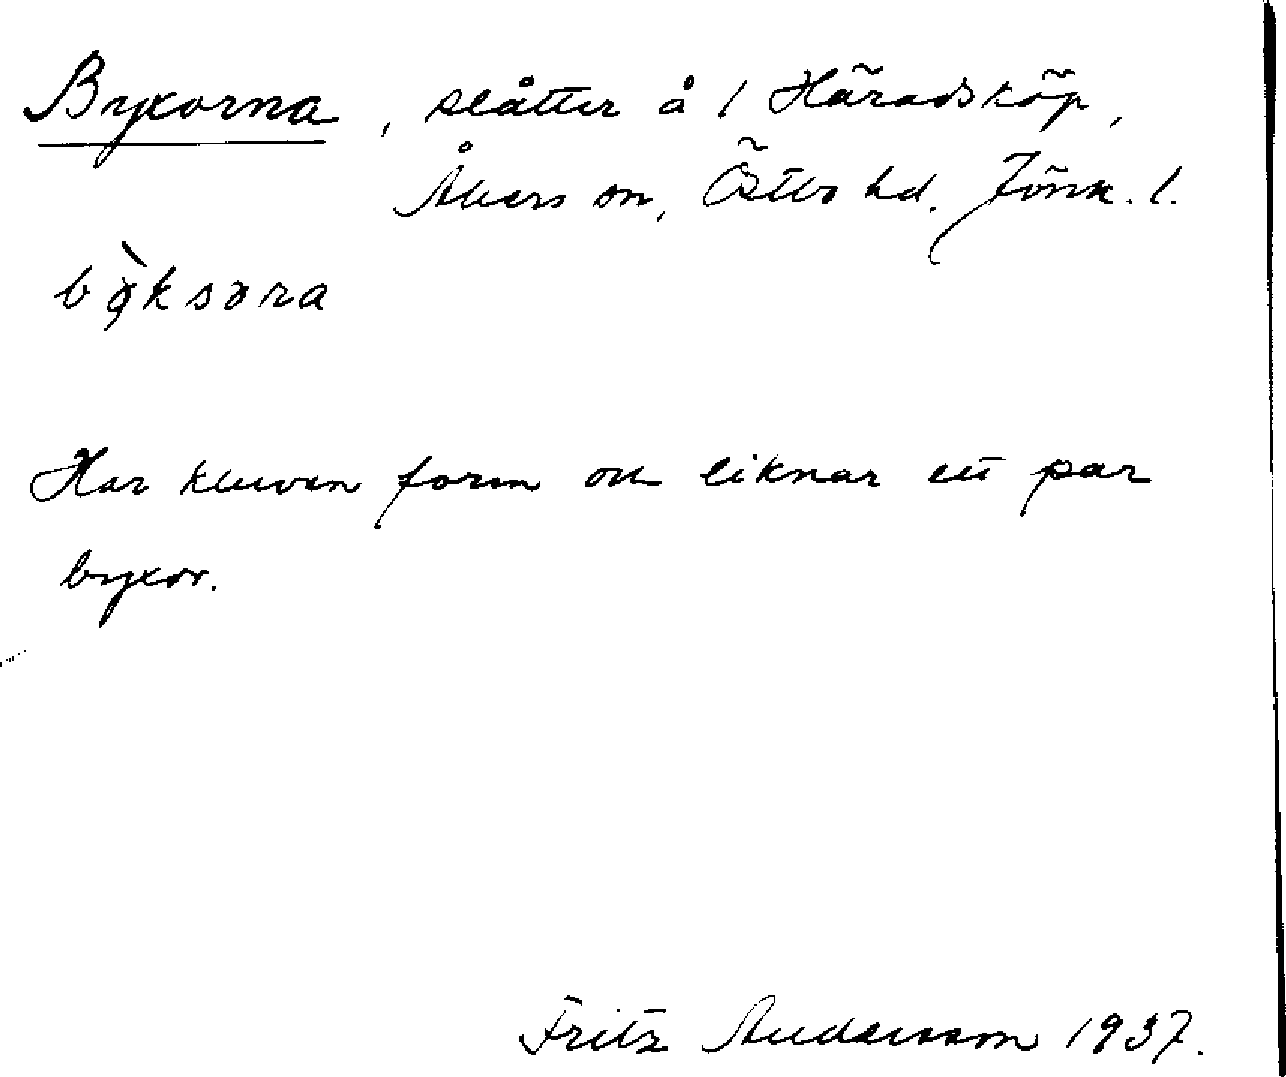 Byxorna, slåtter å 1 Häradsköp,
Åkers sn, Östbo hd. Jönk. l.
bỳksơra
Har kluven form och liknar ett par
byxor.
Fritz Andersson 1937.